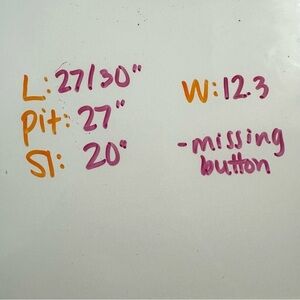 L: 27/30"
pit: 27"
Sl: 20"
W: 12.3
-missing
button